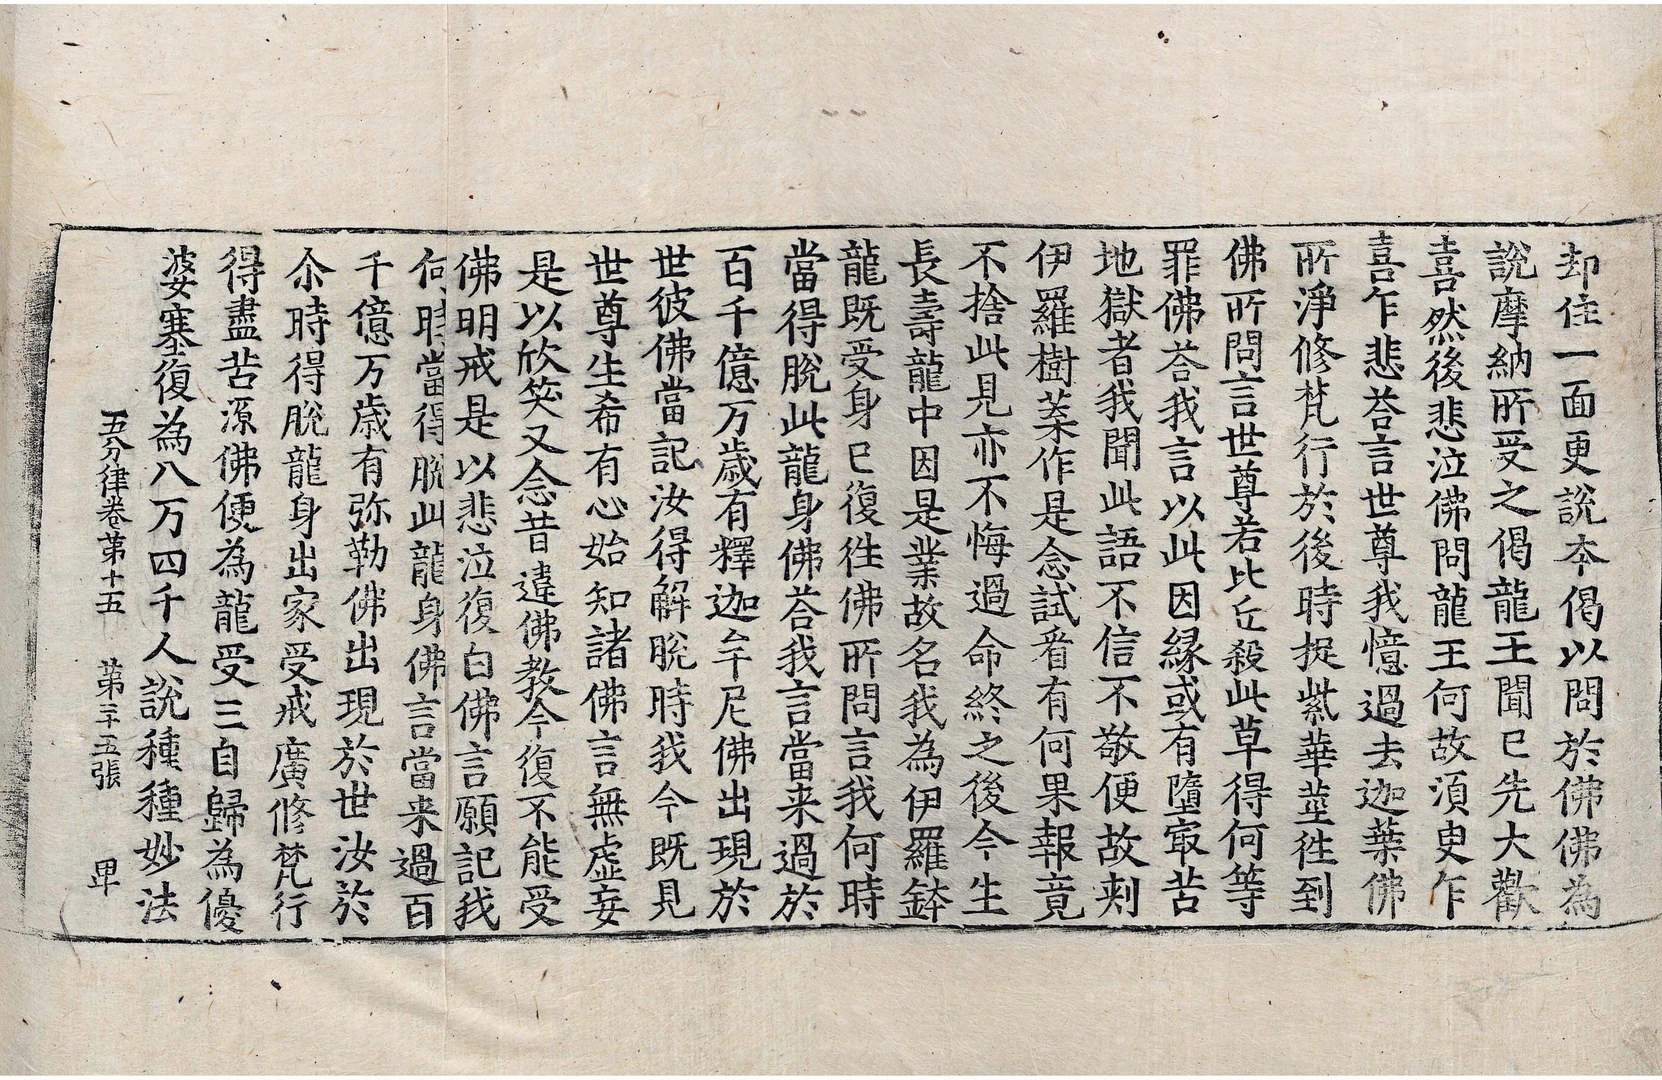 却住一面更說本偈以問於佛佛為
說摩納所受之偈龍王聞已先大歡
喜然後悲泣佛問龍王何故須臾乍
喜乍悲荅言世尊我憶過去迦葉佛
所淨修梵行於後時捉紫華莖徃到
佛所問言世尊若比丘殺此草得何等
罪佛荅我言以此因縁或有墮㝡苦
地獄者我聞此語不信不敬便故刾
伊羅樹菜作是念試看有何果報竟
不捨此見亦不悔過命終之後今生
長壽龍中因是業故名我為伊羅鉢
龍既受身已復徃佛所問言我何時
當得脫此龍身佛荅我言當来過於
百千億万歲有釋迦牟尼佛出現於
世彼佛當記汝得解脫時我今既見
世尊生希有心始知諸佛言無虛妄
是以欣笑又念昔違佛教今復不能受
佛明戒是以悲泣復白佛言願記我
何時當得脫此龍身佛言當来過百
千億万歲有弥勒佛出現於世汝於
尒時得脫龍身出家受戒廣修梵行
得盡苦源佛便為龍受三自歸為優
婆塞復為八万四千人說種種妙法
五分律卷第十五　第三十五張　卑